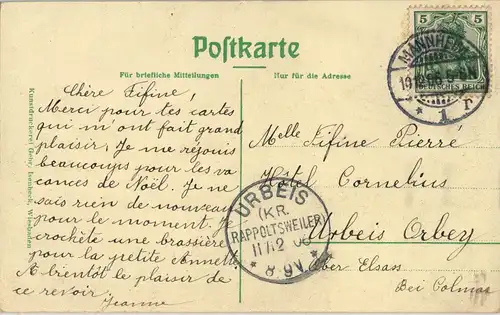 Postkarte
Für briefliche Mitteilungen
Nur für die Adresse
Kunstdruckerei Gebr. Isenbeck, Wiesbaden
Chère Fifine,
Merci pour tes cartes
qui m'ont fait grand
plaisir. Je me réjouis
beaucoup pour les va
cances de Noël. Je ne
sais rien de nouveau
pour le moment, je
crochète une brassière
pour la petite Annette
A bientôt le plaisir de
ce revoir.
Jeanne
5 5
DEUTSCHES REICH
MANNHEIM
* 1 r
Melle Fifine Pierré
Hôtel Cornelius
Urbeis Orbey
Ober Elsass
Bei Colmar
URBEIS
(KR.
RAPPOLTSWEILER)
11 12 06
* 8-9V *